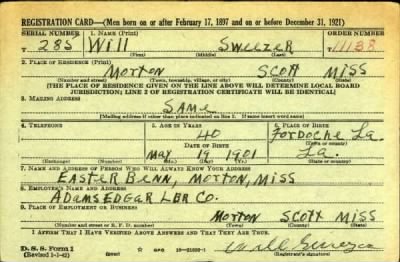 REGISTRATION CARD—(Men born on or after February 17, 1897 and on or before December 31, 1921)
SERIAL NUMBER 1. NAME (Print) ORDER NUMBER
285 Will Sweezer 11138
(First) (Middle) (Last)
2. PLACE OF RESIDENCE (Print)
Morton Scott Miss
(Number and street) (Town, township, village, or city) (County) (State)
[THE PLACE OF RESIDENCE GIVEN ON THE LINE ABOVE WILL DETERMINE LOCAL BOARD
JURISDICTION; LINE 2 OF REGISTRATION CERTIFICATE WILL BE IDENTICAL]
3. MAILING ADDRESS
SAME
[Mailing address if other than place indicated on line 2. If same insert word same]
4. TELEPHONE 5. AGE IN YEARS 6. PLACE OF BIRTH
40 Fordoche La
DATE OF BIRTH (Town or county)
May 19 1901 La.
(Exchange) (Number) (Mo.) (Day) (Yr.) (State or country)
7. NAME AND ADDRESS OF PERSON WHO WILL ALWAYS KNOW YOUR ADDRESS
EASTER BENN, MORTON, MISS
8. EMPLOYER'S NAME AND ADDRESS
ADAMS EDGAR LBR CO.
9. PLACE OF EMPLOYMENT OR BUSINESS
Morton Scott Miss
(Number and street or R. F. D. number) (Town) (County) (State)
I AFFIRM THAT I HAVE VERIFIED ABOVE ANSWERS AND THAT THEY ARE TRUE.
D. S. S. Form 1
(Revised 1-1-42) (over) GPO Will
(Registrant's signature)